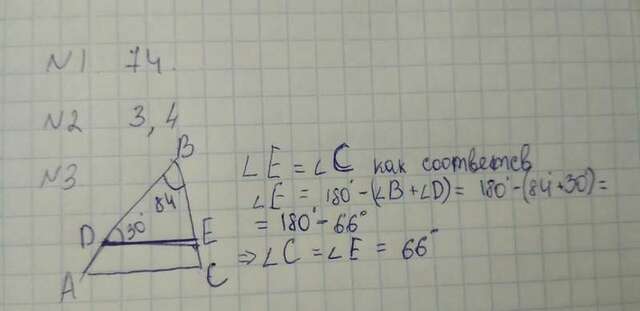 N1 74.
N2 3, 4
N3
B
84°
D 30° E
A C
∠E = ∠C как соответсв
∠E = 180° - (∠B + ∠D) = 180° - (84° + 30°) =
= 180° - 66°
⇒ ∠C = ∠E = 66°